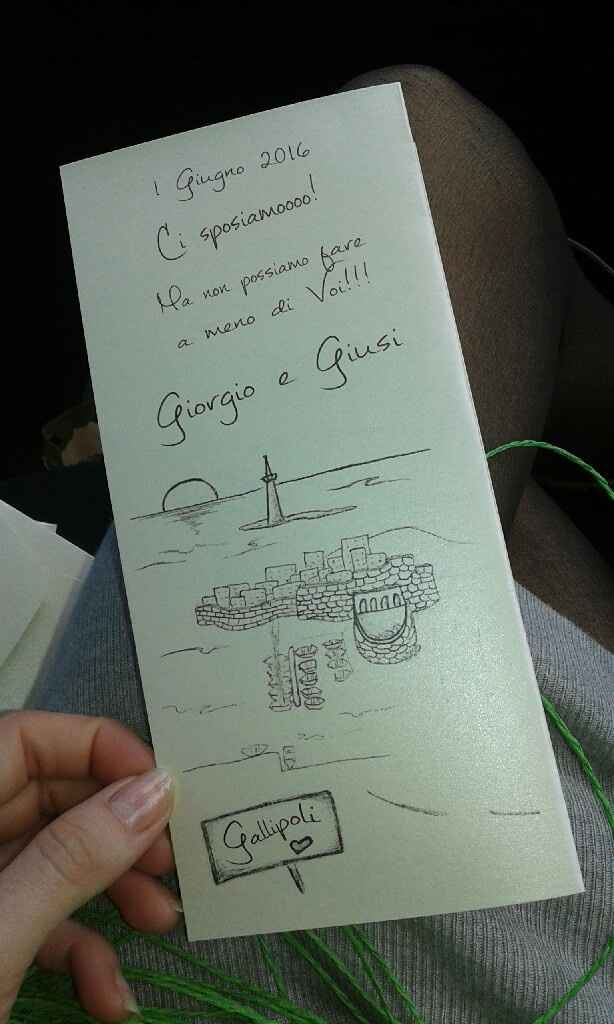 1 Giugno 2016
Ci sposiamoooo!
Ma non possiamo fare
a meno di Voi!!!
Giorgio e Giusi
Gallipoli